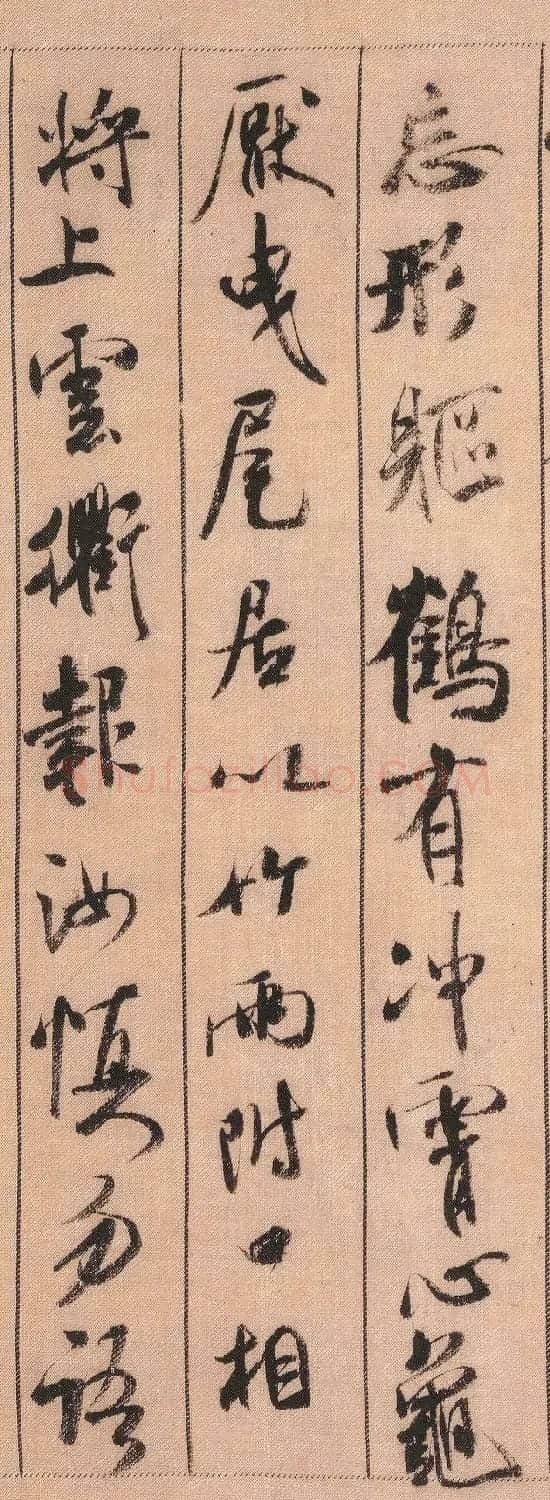 忘形軀鶴有冲霄心龜
厭曳尾居以竹兩附口相
將上雲衢報汝慎勿語
shufaziliao.COM